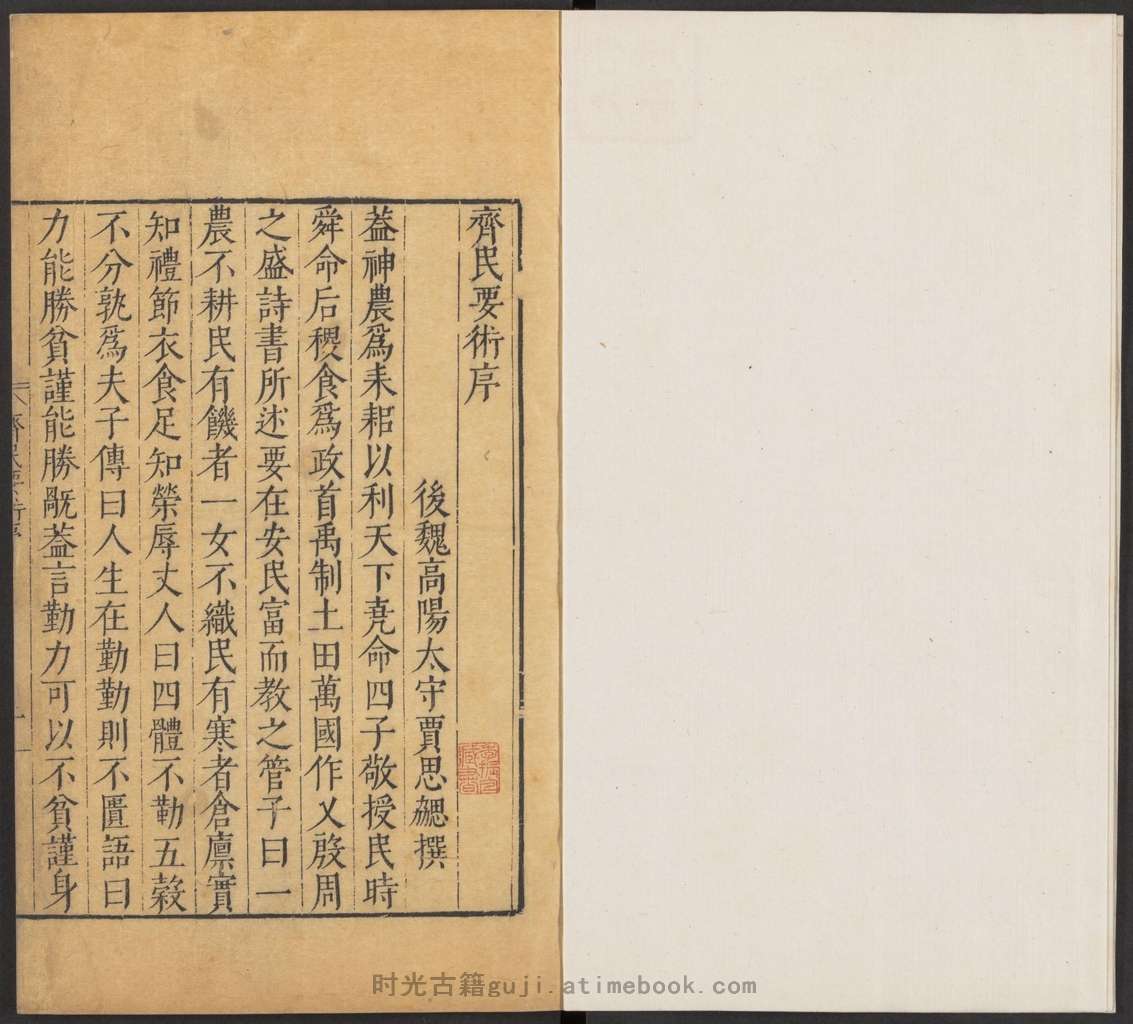 齊民要術序
後魏高陽太守賈思勰撰
葢神農爲耒耜以利天下堯命四子敬授民時
舜命后稷食爲政首禹制土田萬國作乂殷周
之盛詩書所述要在安民富而教之管子曰一
農不耕民有饑者一女不織民有寒者倉廩實
知禮節衣食足知榮辱丈人曰四體不勤五糓
不分孰爲夫子傳曰人生在勤勤則不匱語曰
力能勝貧謹能勝旤葢言勤力可以不貧謹身
齊民要術序
一
时光古籍guji.atimebook.com